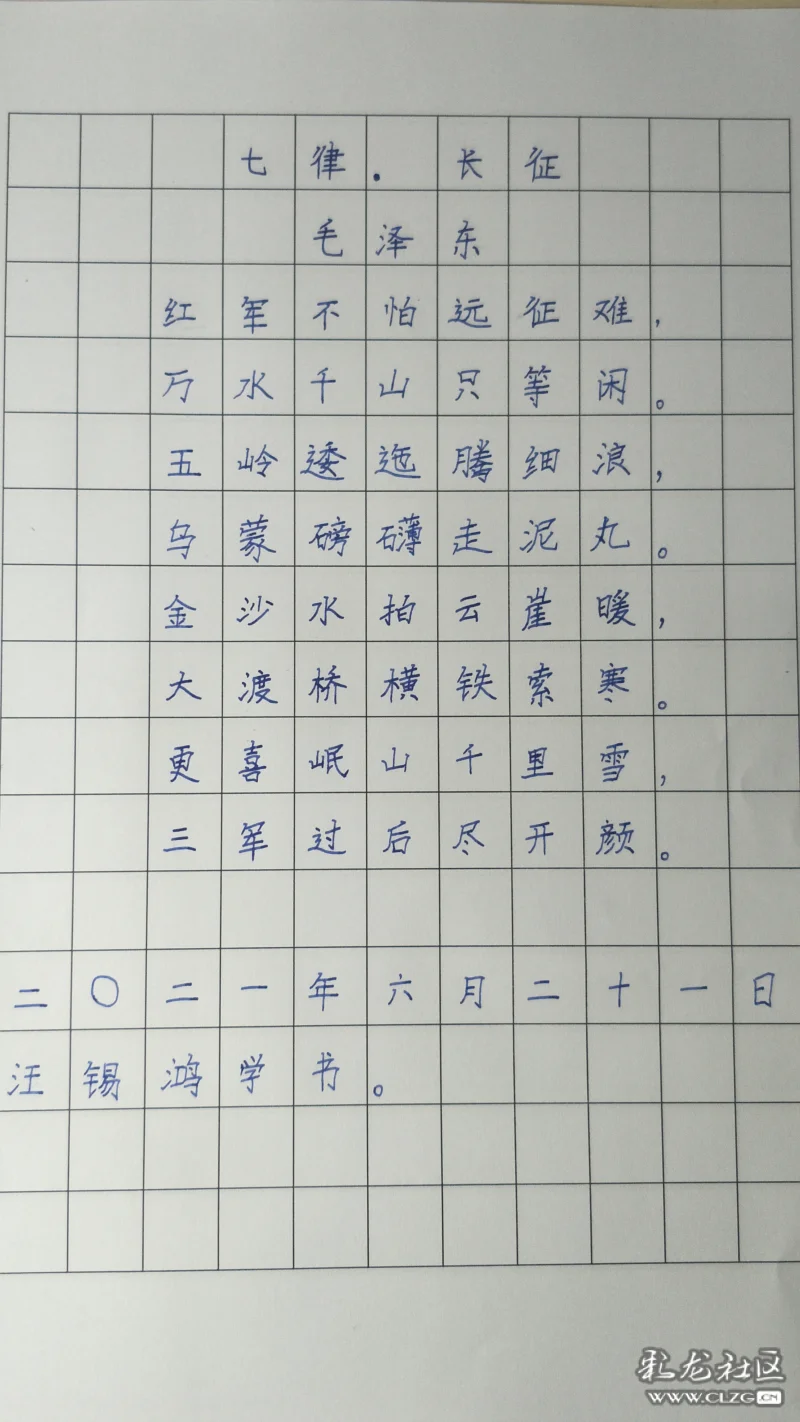 七律．长征
毛泽东
红军不怕远征难，
万水千山只等闲。
五岭逶迤腾细浪，
乌蒙磅礴走泥丸。
金沙水拍云崖暖，
大渡桥横铁索寒。
更喜岷山千里雪，
三军过后尽开颜。
二〇二一年六月二十一日
汪锡鸿学书。
彩龙社区
WWW.CLZG.CN